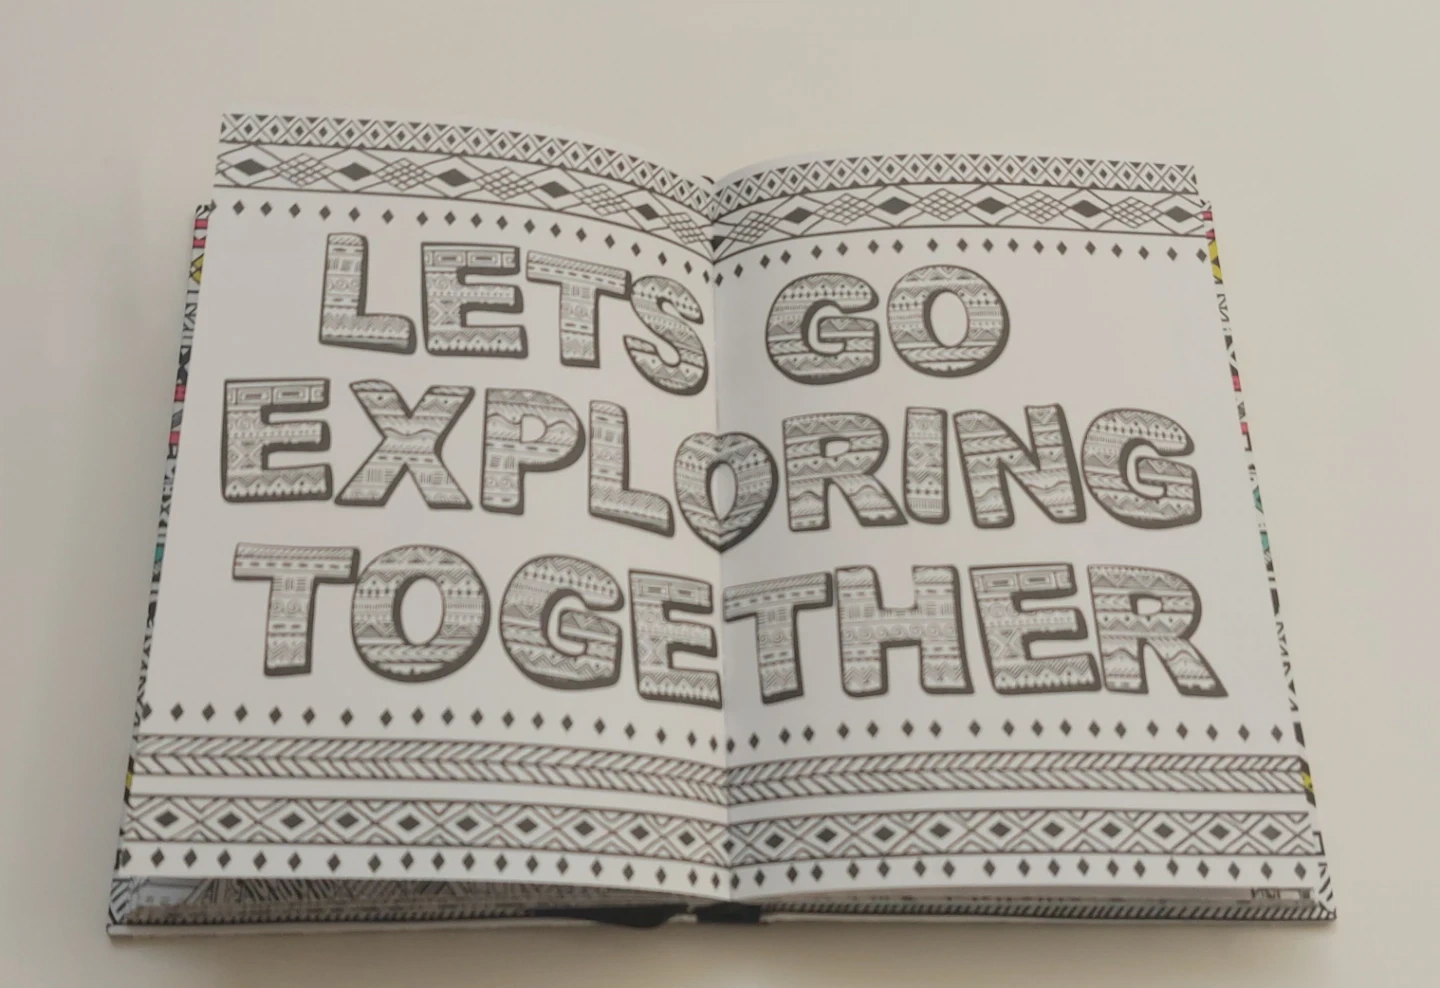 LETS GO
EXPLORING
TOGETHER